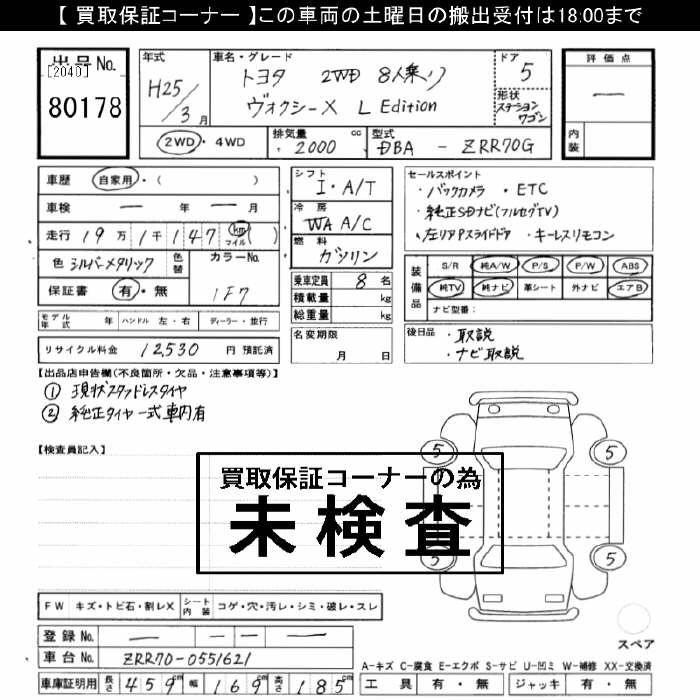 【 買取保証コーナー 】この車両の土曜日の搬出受付は18:00まで
出品No.
[2040]
80178
年式
H25/3月
車名・グレード
トヨタ 2WD 8人乗り
ヴォクシーX L Edition
ドア
5
形状
ステーションワゴン
評価点
—
内装
2WD・4WD
排気量
2000 cc
型式
DBA - ZRR70G
車歴 自家用・( )
車検 — 年 — 月
走行 19万1千147 km マイル ( )
色 シルバーメタリック 色替 カラーNo.
1F7
保証書 有・無
シフト
I・A/T
冷房
WA A/C
燃料
ガソリン
乗車定員 8 名
積載量 kg
総重量 kg
セールスポイント
・バックカメラ ・ETC
・純正SDナビ(フルセグTV)
・左リアPスライドドア ・キーレスリモコン
装備品
S/R 純A/W P/S P/W ABS
純TV 純ナビ 革シート 外ナビ エアB
ナビ型番:
モデル年式 年 ハンドル 左・右 ディーラー・並行
リサイクル料金 12,530 円 預託済
名変期限
月 日
後日品
・取説
・ナビ取説
【出品店申告欄(不良箇所・欠品・注意事項等)】
① 現状スタッドレスタイヤ
② 純正タイヤ一式車内有
【検査員記入】
買取保証コーナーの為
未検査
5 5
5 5
スペア
FW キズ・トビ石・割レX シート内装 コゲ・穴・汚レ・シミ・破レ・スレ
登録No. — — — —
車台No. ZRR70-0551621
車庫証明用 長さ 459cm 幅 169cm 高さ 185cm
A-キズ C-腐食 E-エクボ S-サビ U-凹ミ W-補修 XX-交換済
工具 有・無 ジャッキ 有・無